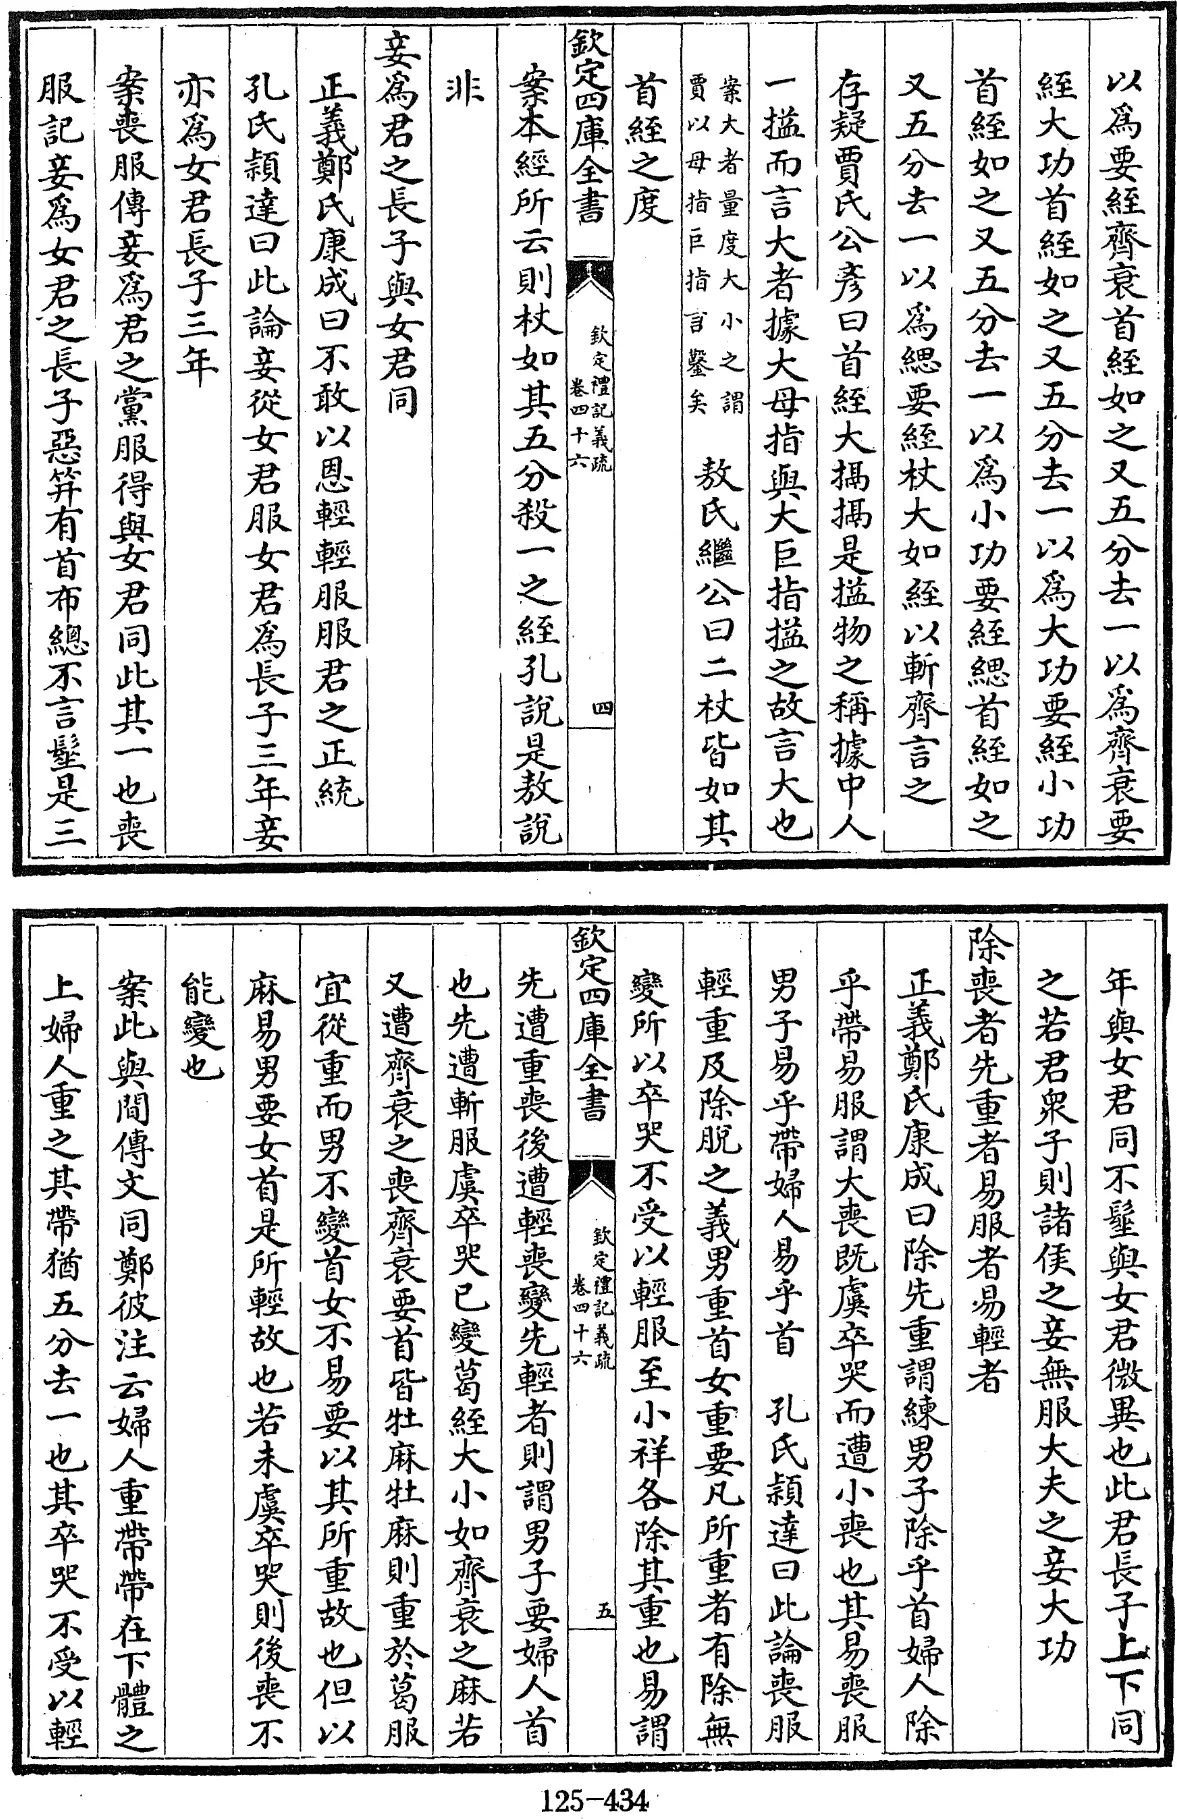 以為要絰齊衰首絰如之又五分去一以為齊衰要
絰大功首絰如之又五分去一以為大功要絰小功
首絰如之又五分去一以為小功要絰緦首絰如之
又五分去一以為緦要絰杖大如絰以斬齊言之
存疑賈氏公彦曰首絰大搹搹是搤物之稱據中人
一搤而言大者據大母指與大巨指搤之故言大也
案大者量度大小之謂
賈以母指巨指言鑿矣
敖氏繼公曰二杖皆如其
首絰之度
欽定四庫全書
欽定禮記義疏
卷四十六
四
案本經所云則杖如其五分殺一之絰孔說是敖說
非
妾為君之長子與女君同
正義鄭氏康成曰不敢以恩輕輕服服君之正統
孔氏穎達曰此論妾從女君服女君為長子三年妾
亦為女君長子三年
案喪服傳妾為君之黨服得與女君同此其一也喪
服記妾為女君之長子惡笄有首布總不言髽是三
年與女君同不髽與女君微異也此君長子上下同
之若君衆子則諸侯之妾無服大夫之妾大功
除喪者先重者易服者易輕者
正義鄭氏康成曰除先重謂練男子除乎首婦人除
乎帶易服謂大喪既虞卒哭而遭小喪也其易喪服
男子易乎帶婦人易乎首 孔氏穎達曰此論喪服
輕重及除脫之義男重首女重要凡所重者有除無
變所以卒哭不受以輕服至小祥各除其重也易謂
欽定四庫全書
欽定禮記義疏
卷四十六
五
先遭重喪後遭輕喪變先輕者則謂男子要婦人首
也先遭斬服虞卒哭已變葛絰大小如齊衰之麻若
又遭齊衰之喪齊衰要首皆牡麻牡麻則重於葛服
宜從重而男不變首女不易要以其所重故也但以
麻易男要女首是所輕故也若未虞卒哭則後喪不
能變也
案此與間傳文同鄭彼注云婦人重帶帶在下體之
上婦人重之其帶猶五分去一也其卒哭不受以輕
125-434